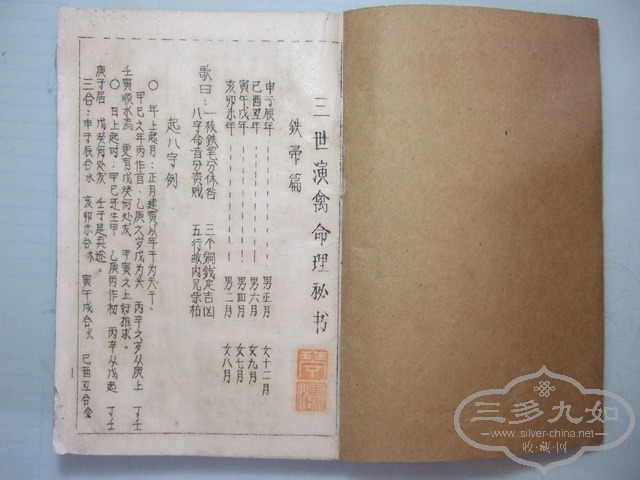 三世演禽命理秘书
鉄帚篇
申子辰年 男正月 女十二月
巳酉丑年 男六月 女九月
寅午戌年 男四月 女七月
亥卯未年 男二月 女八月
歌曰：一枚鉄笔分休咎 三个銅銭定吉凶
八字命音分贵賎 五行 枯
起八字例
〇 年上起月：正月建寅以年干为天干。
甲己之年丙作首 乙庚之岁戊为头 丙辛之岁从庚上 丁壬
壬寅顺水流 更有戊癸何处发 甲寅之上好推求。
〇 日上起时：甲己还生甲 乙庚丙作初 丙辛从戊起 丁壬
庚子居 戊癸何处发 壬子是真途。
三合：申子辰合水 亥卯未合木 寅午戌合火 巳酉丑合金
三多九如
www.silver-china.net
收·藏·网